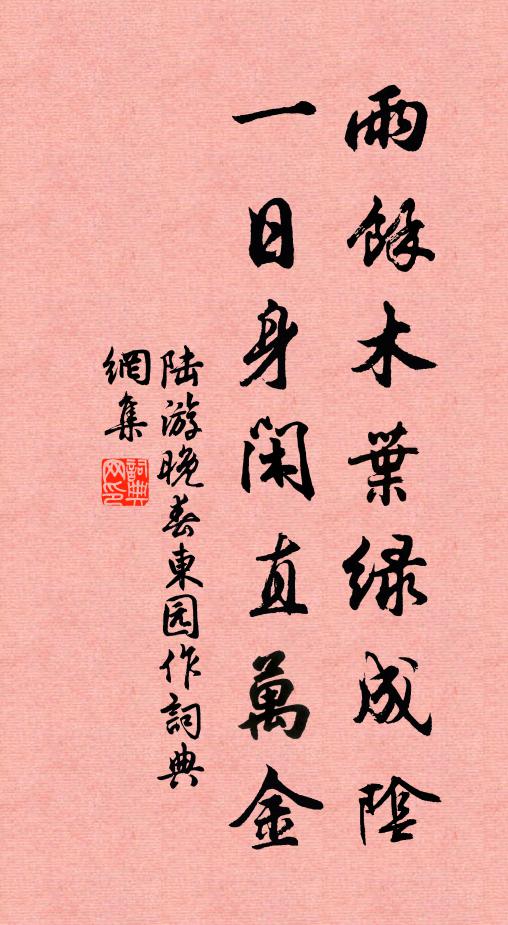 雨餘木葉绿成陰
一日身閑直萬金
陆游晚春東园作詞典
網集
詞典网印